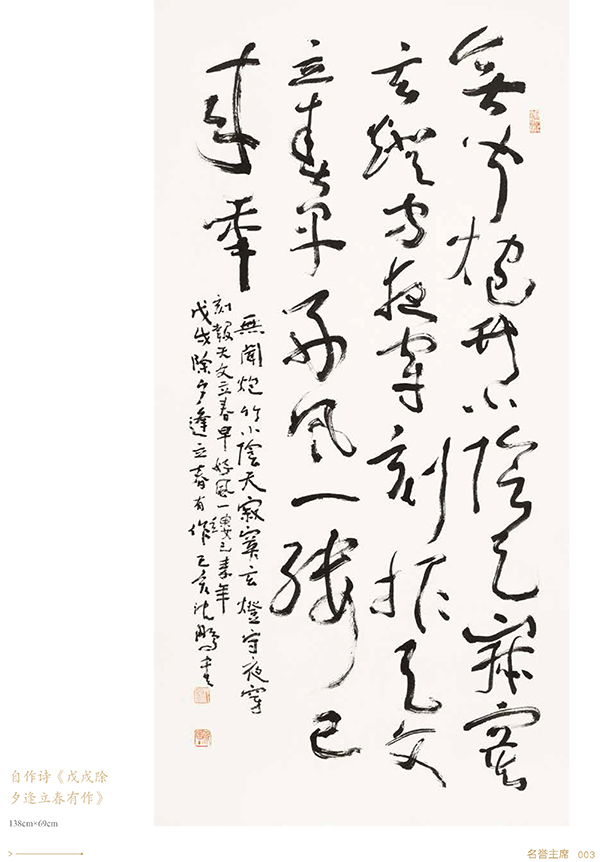 無聞炮竹小陰天寂寞
玄燈守夜穿刻報天文
立春早好風一縷已
來年
無聞炮竹小陰天寂寞玄燈守夜穿
刻報天文立春早好風一縷已來年
戊戌除夕逢立春有作己亥沈鵬書
自作诗《戊戌除
夕逢立春有作》
138cm×69cm
名誉主席 003